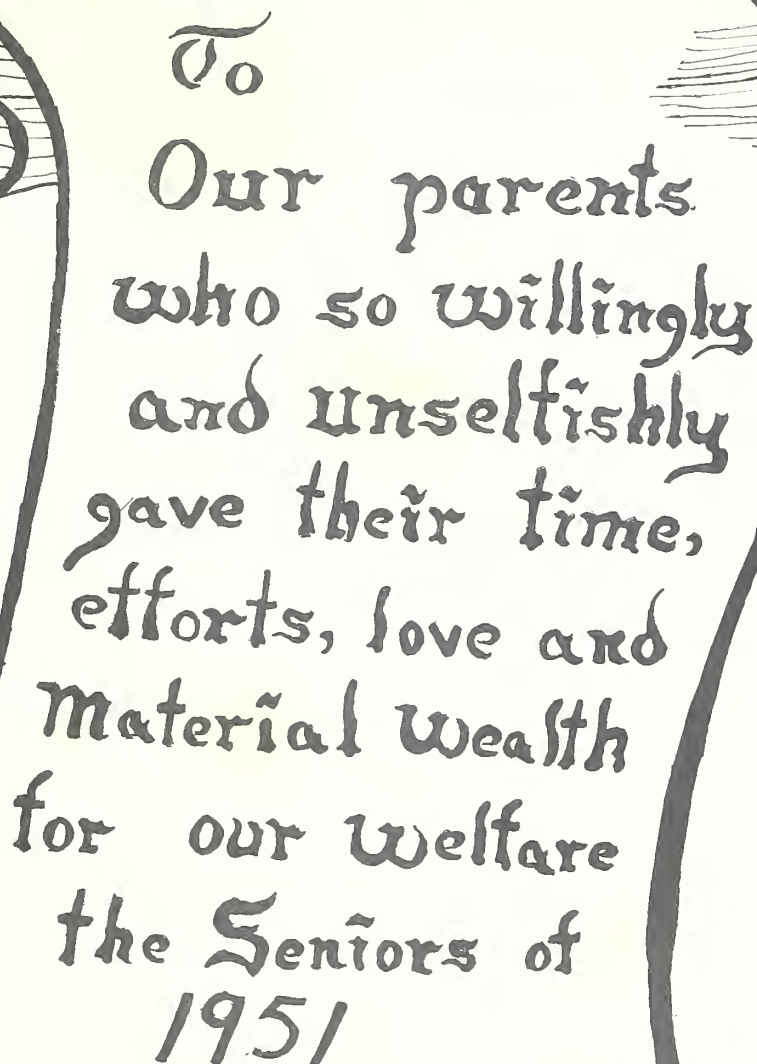 To
Our parents
who so willingly
and unselfishly
gave their time,
efforts, love and
material wealth
for our welfare
the Seniors of
1951